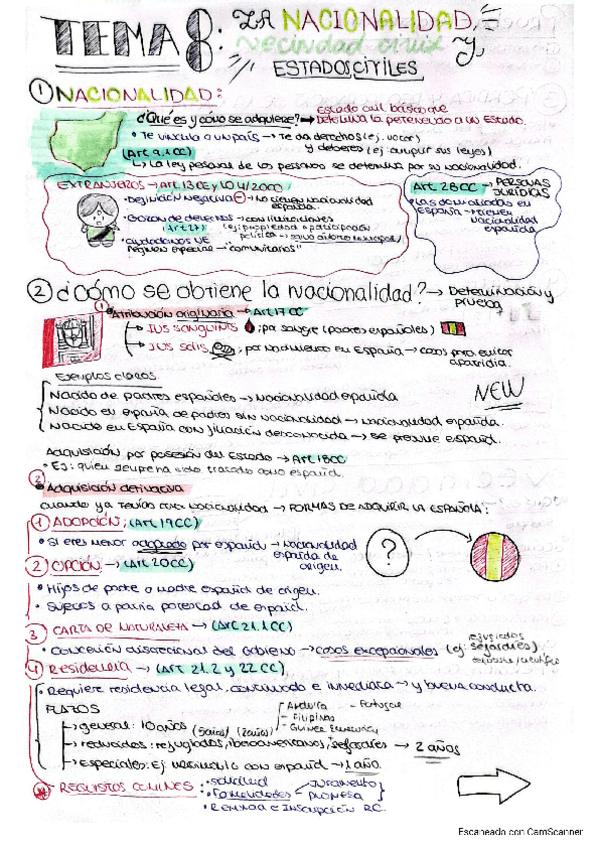 TEMA 8: LA NACIONALIDAD,
Vecindad civil Y
ESTADOS CIVILES
① NACIONALIDAD:
¿Qué es y cómo se adquiere? → Estado civil básico que
Determina la pertenencia a un Estado.
• Te vincula a un país → Te da derechos (ej: votar)
y deberes (ej: cumplir sus leyes)
(Art 9.1 CC)
↳ La ley personal de las personas se determina por su nacionalidad.
EXTRANJEROS → Art 13 CE y LO 4/2000
• Definición negativa ⊖ → No tienen nacionalidad
española.
• Gozan de derechos → con limitaciones
Art 27)
• Ciudadanos UE
Régimen especial → "comunitarios"
Art 28 CC → PERSONAS
JURÍDICAS
• Las domiciliadas en
España → tienen
nacionalidad
española
② ¿Cómo se obtiene la nacionalidad? → Determinación y
prueba
① • Atribución originaria → Art 17 CC
→ IUS SANGUINIS : por sangre (padres españoles)
→ IUS SOLIS : por nacimiento en España → casos para evitar
apatridia.
Ejemplos claros
Nacido de padres españoles → Nacionalidad española
Nacido en España de padres sin nacionalidad → Nacionalidad española.
Nacido en España con filiación desconocida → se presume español.
NEW
Adquisición por posesión del Estado → Art 18 CC
• Ej: quien siempre ha sido tratado como español.
② • Adquisición derivativa
cuando ya tenías otra nacionalidad → FORMAS DE ADQUIRIR LA ESPAÑOLA:
① ADOPCIÓN: (Art 19 CC)
• Si eres menor adoptado por español → Nacionalidad
española de
origen.
?
② OPCIÓN → (Art 20 CC)
• Hijos de padre o madre español de origen.
• Sujetos a patria potestad de español.
③ CARTA DE NATURALEZA → (Art 21.1 CC)
• Concesión discrecional del Gobierno → casos excepcionales (ej: sefardíes)
refugiados
④ Residencia → (Art 21.2 y 22 CC)
• Requiere residencia legal, continuada e inmediata → y buena conducta.
PLAZOS
→ general: 10 años (5 años) (2 años)
- Andorra - Portugal
- Filipinas
- Guinea Ecuatorial
→ reducidos: refugiados, iberoamericanos, sefardíes → 2 años
→ especiales: Ej: matrimonio con español → 1 año.
* REQUISITOS COMUNES:
• Solicitud
• Formalidades → Juramento
→ promesa
• Renuncia e Inscripción RC.
Escaneado con CamScanner